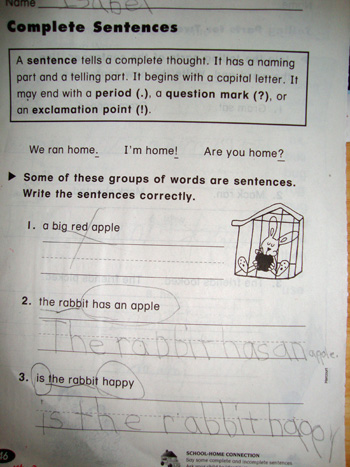 Name Isabel
Complete Sentences
A sentence tells a complete thought. It has a naming
part and a telling part. It begins with a capital letter. It
may end with a period (.), a question mark (?), or
an exclamation point (!).
We ran home. I'm home! Are you home?
▶ Some of these groups of words are sentences.
Write the sentences correctly.
1. a big red apple
2. the rabbit has an apple
The rabbit has an apple.
3. is the rabbit happy
is the rabbit happy
Harcourt
SCHOOL-HOME CONNECTION
Say some complete and incomplete sentences.